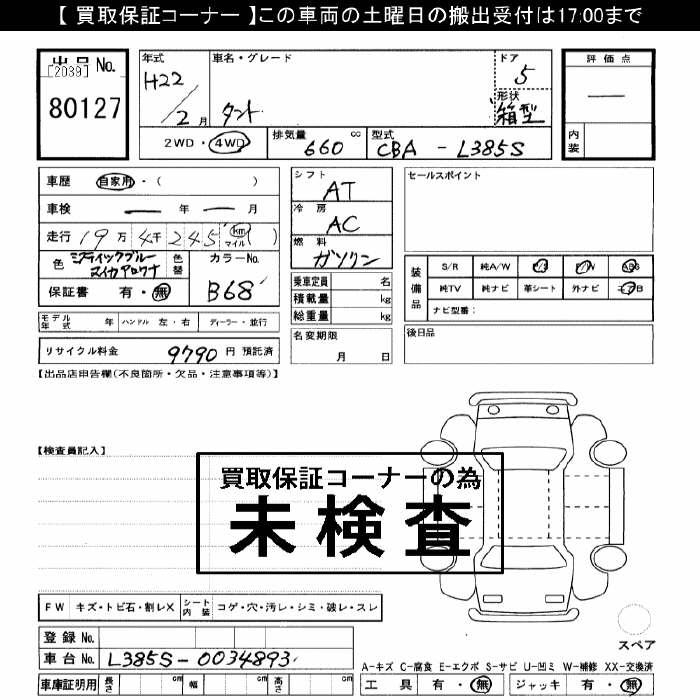 【 買取保証コーナー 】この車両の土曜日の搬出受付は17:00まで
出品 No.
[2039]
80127
年式 H22 / 2 月
車名・グレード
タント
ドア 5
形状 箱型
2WD・4WD
排気量 cc 660
型式 CBA - L385S
評価点
—
内装
車歴 自家用・( )
車検 — 年 — 月
走行 19 万 4 千 245 km マイル ( )
色
色替
カラーNo. B68
保証書 有・無
シフト AT
冷房 AC
燃料 ガソリン
乗車定員 名
積載量 kg
総重量 kg
名変期限
月 日
セールスポイント
装備品
S/R 純A/W P/S P/W ABS
純TV 純ナビ 革シート 外ナビ エアB
ナビ型番:
後日品
モデル年式 年 ハンドル 左・右 ディーラー・並行
リサイクル料金 9790 円 預託済
【出品店申告欄(不良箇所・欠品・注意事項等)】
【検査員記入】
買取保証コーナーの為
未検査
FW キズ・トビ石・割レX シート内装 コゲ・穴・汚レ・シミ・破レ・スレ
登録 No.
車台 No. L385S-0034893
スペア
A-キズ C-腐食 E-エクボ S-サビ U-凹ミ W-補修 XX-交換済
車庫証明用 長さ cm 幅 cm 高さ cm
工具 有・無 ジャッキ 有・無